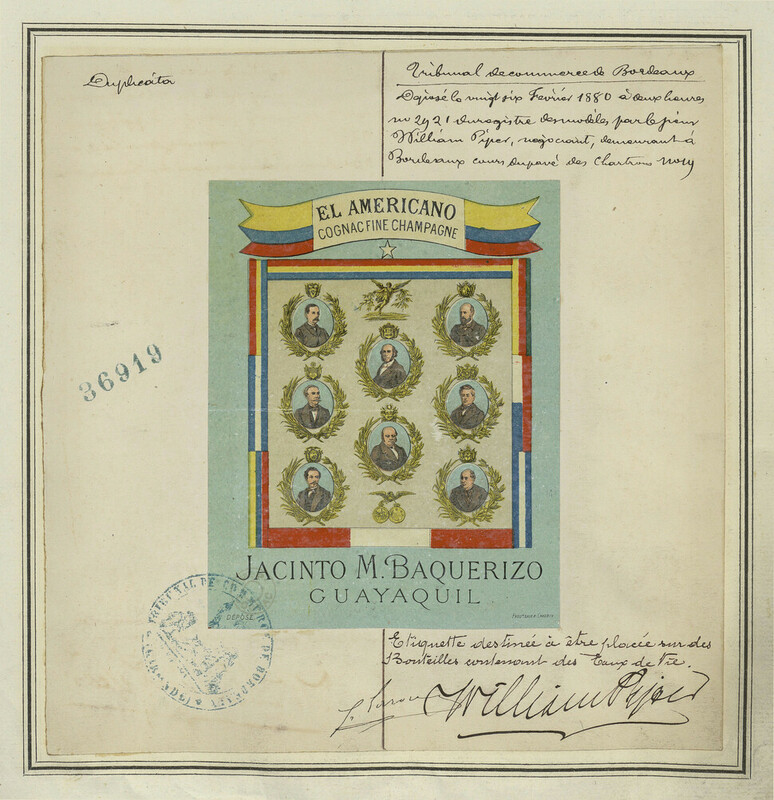 Duplicata
Tribunal de commerce de Bordeaux
Déposé le vingt six Février 1880 à deux heures
no 2921 du registre des modèles, par le sieur
William Piper, négociant, demeurant à
Bordeaux cours du pavé des Chartrons no
EL AMERICANO
COGNAC FINE CHAMPAGNE
36919
JACINTO M. BAQUERIZO
GUAYAQUIL
DÉPOSÉ
TRIBUNAL DE COMMERCE DE BORDEAUX
Etiquette destinée à être placée sur des
Bouteilles contenant des Eaux de Vie.
William Piper